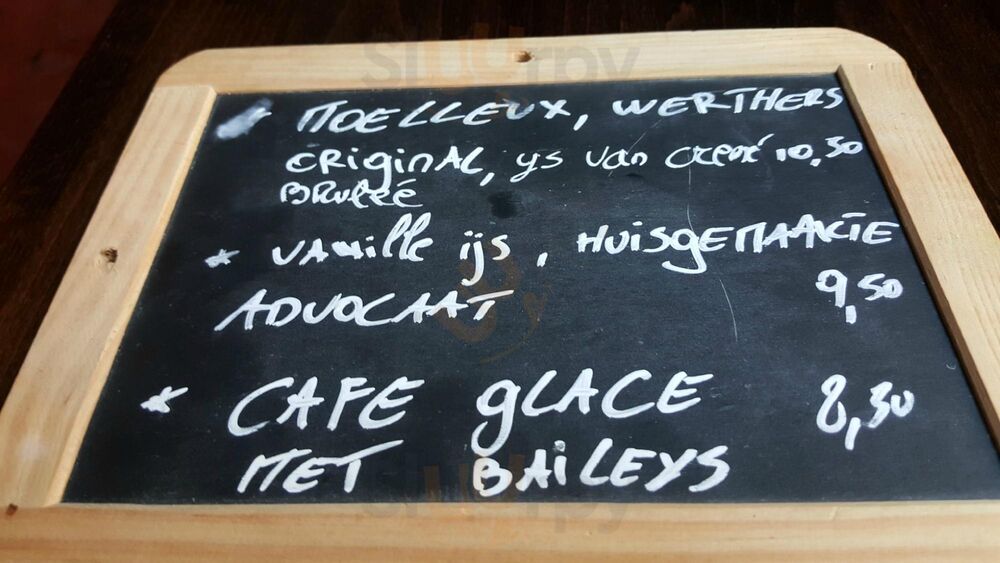 * MOELLEUX, WERTHERS
ORiginAL, ys van CREMé 10,30
BRULéé
* VANille ijs, HUISgEMAAKTE
ADVOCAAT 9,50
* CAFE gLACE 8,30
MET BAiLEYS